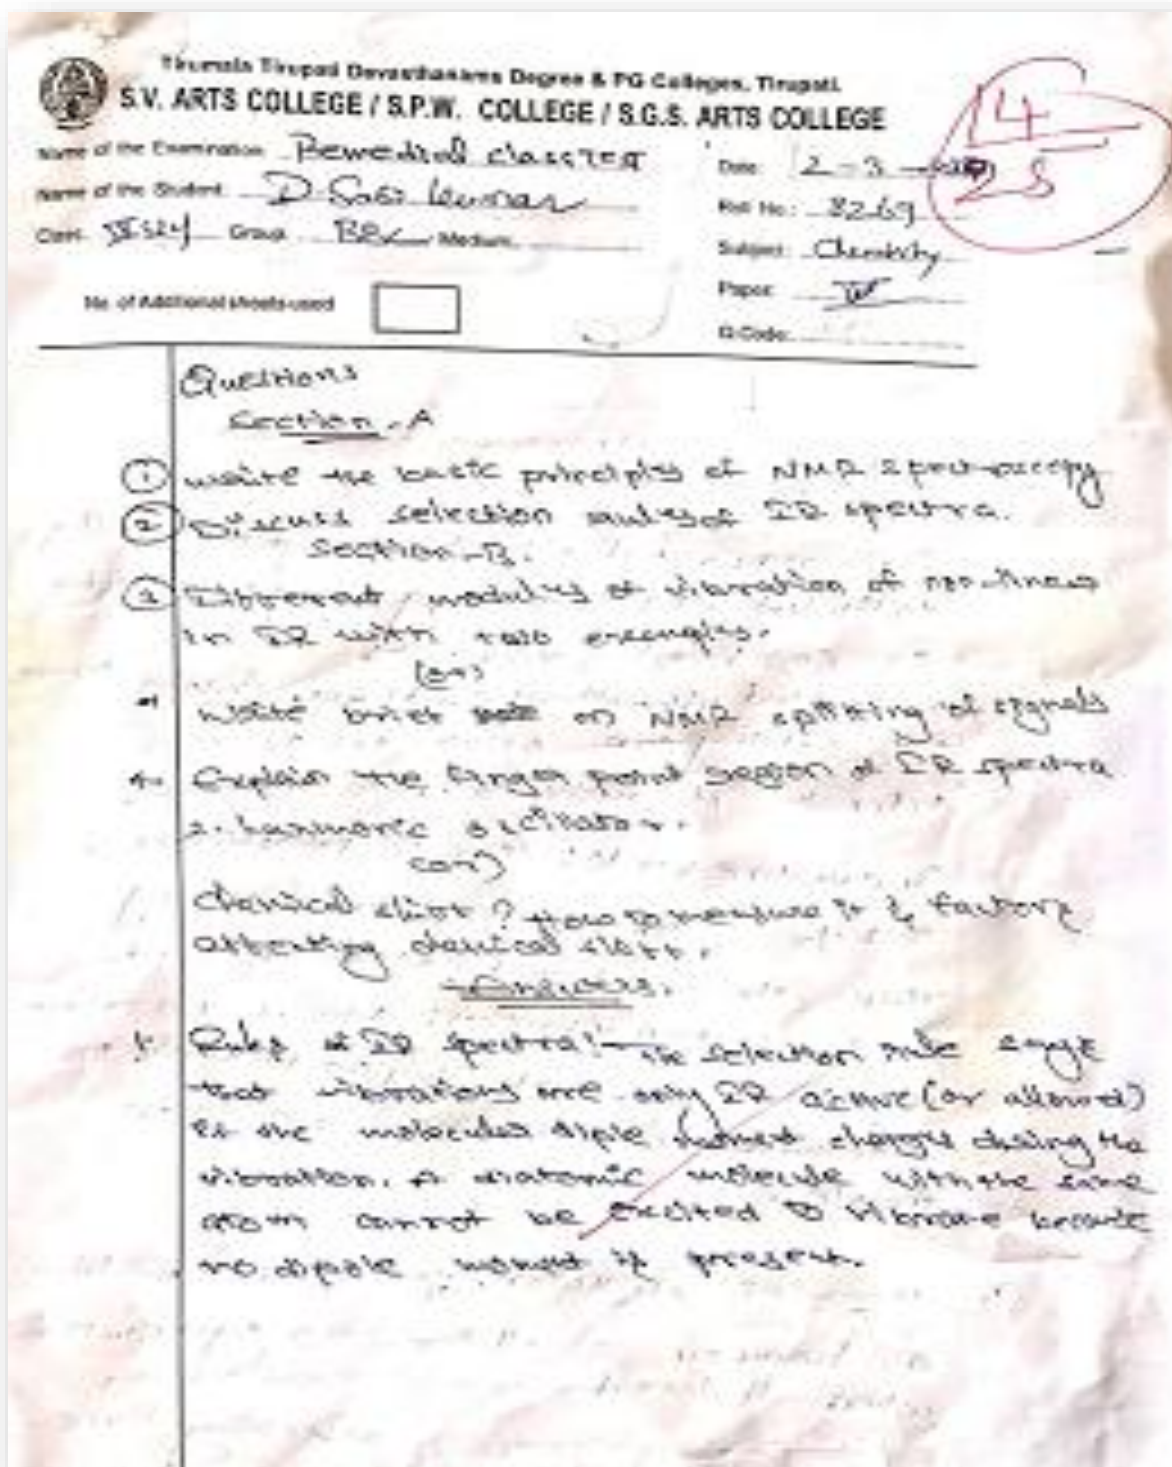 Tirumala Tirupati Devasthanams Degree & PG Colleges, Tirupati.
S.V. ARTS COLLEGE / S.P.W. COLLEGE / S.G.S. ARTS COLLEGE
14
25
Name of the Examination: Remedial class Test
Date: 12-3-
Name of the Student: D. Sasi Kumar
Roll No.: 8269
Class: Group: Medium:
Subject: Chemistry
Paper:
No. of Additional sheets used
Q.Code:
Questions
Section - A
1 write the basic principles of NMR spectroscopy
2 Discuss selection rules of IR spectra.
Section - B.
3 Different modules of vibration of non-linear
in IR with two examples.
(or)
write brief note on NMR splitting of signals
4 Explain the finger point region of IR spectra
2. harmonic oscillator.
(or)
chemical shift? How to measure it & factors
affecting chemical shift.
Answers.
1. Rules of IR spectra:- The selection rule says
that vibrations are only IR active (or allowed)
if the molecules diple moment changes during the
vibration. A diatomic molecule with the same
atom cannot be excited to vibrate because
no dipole moment is present.